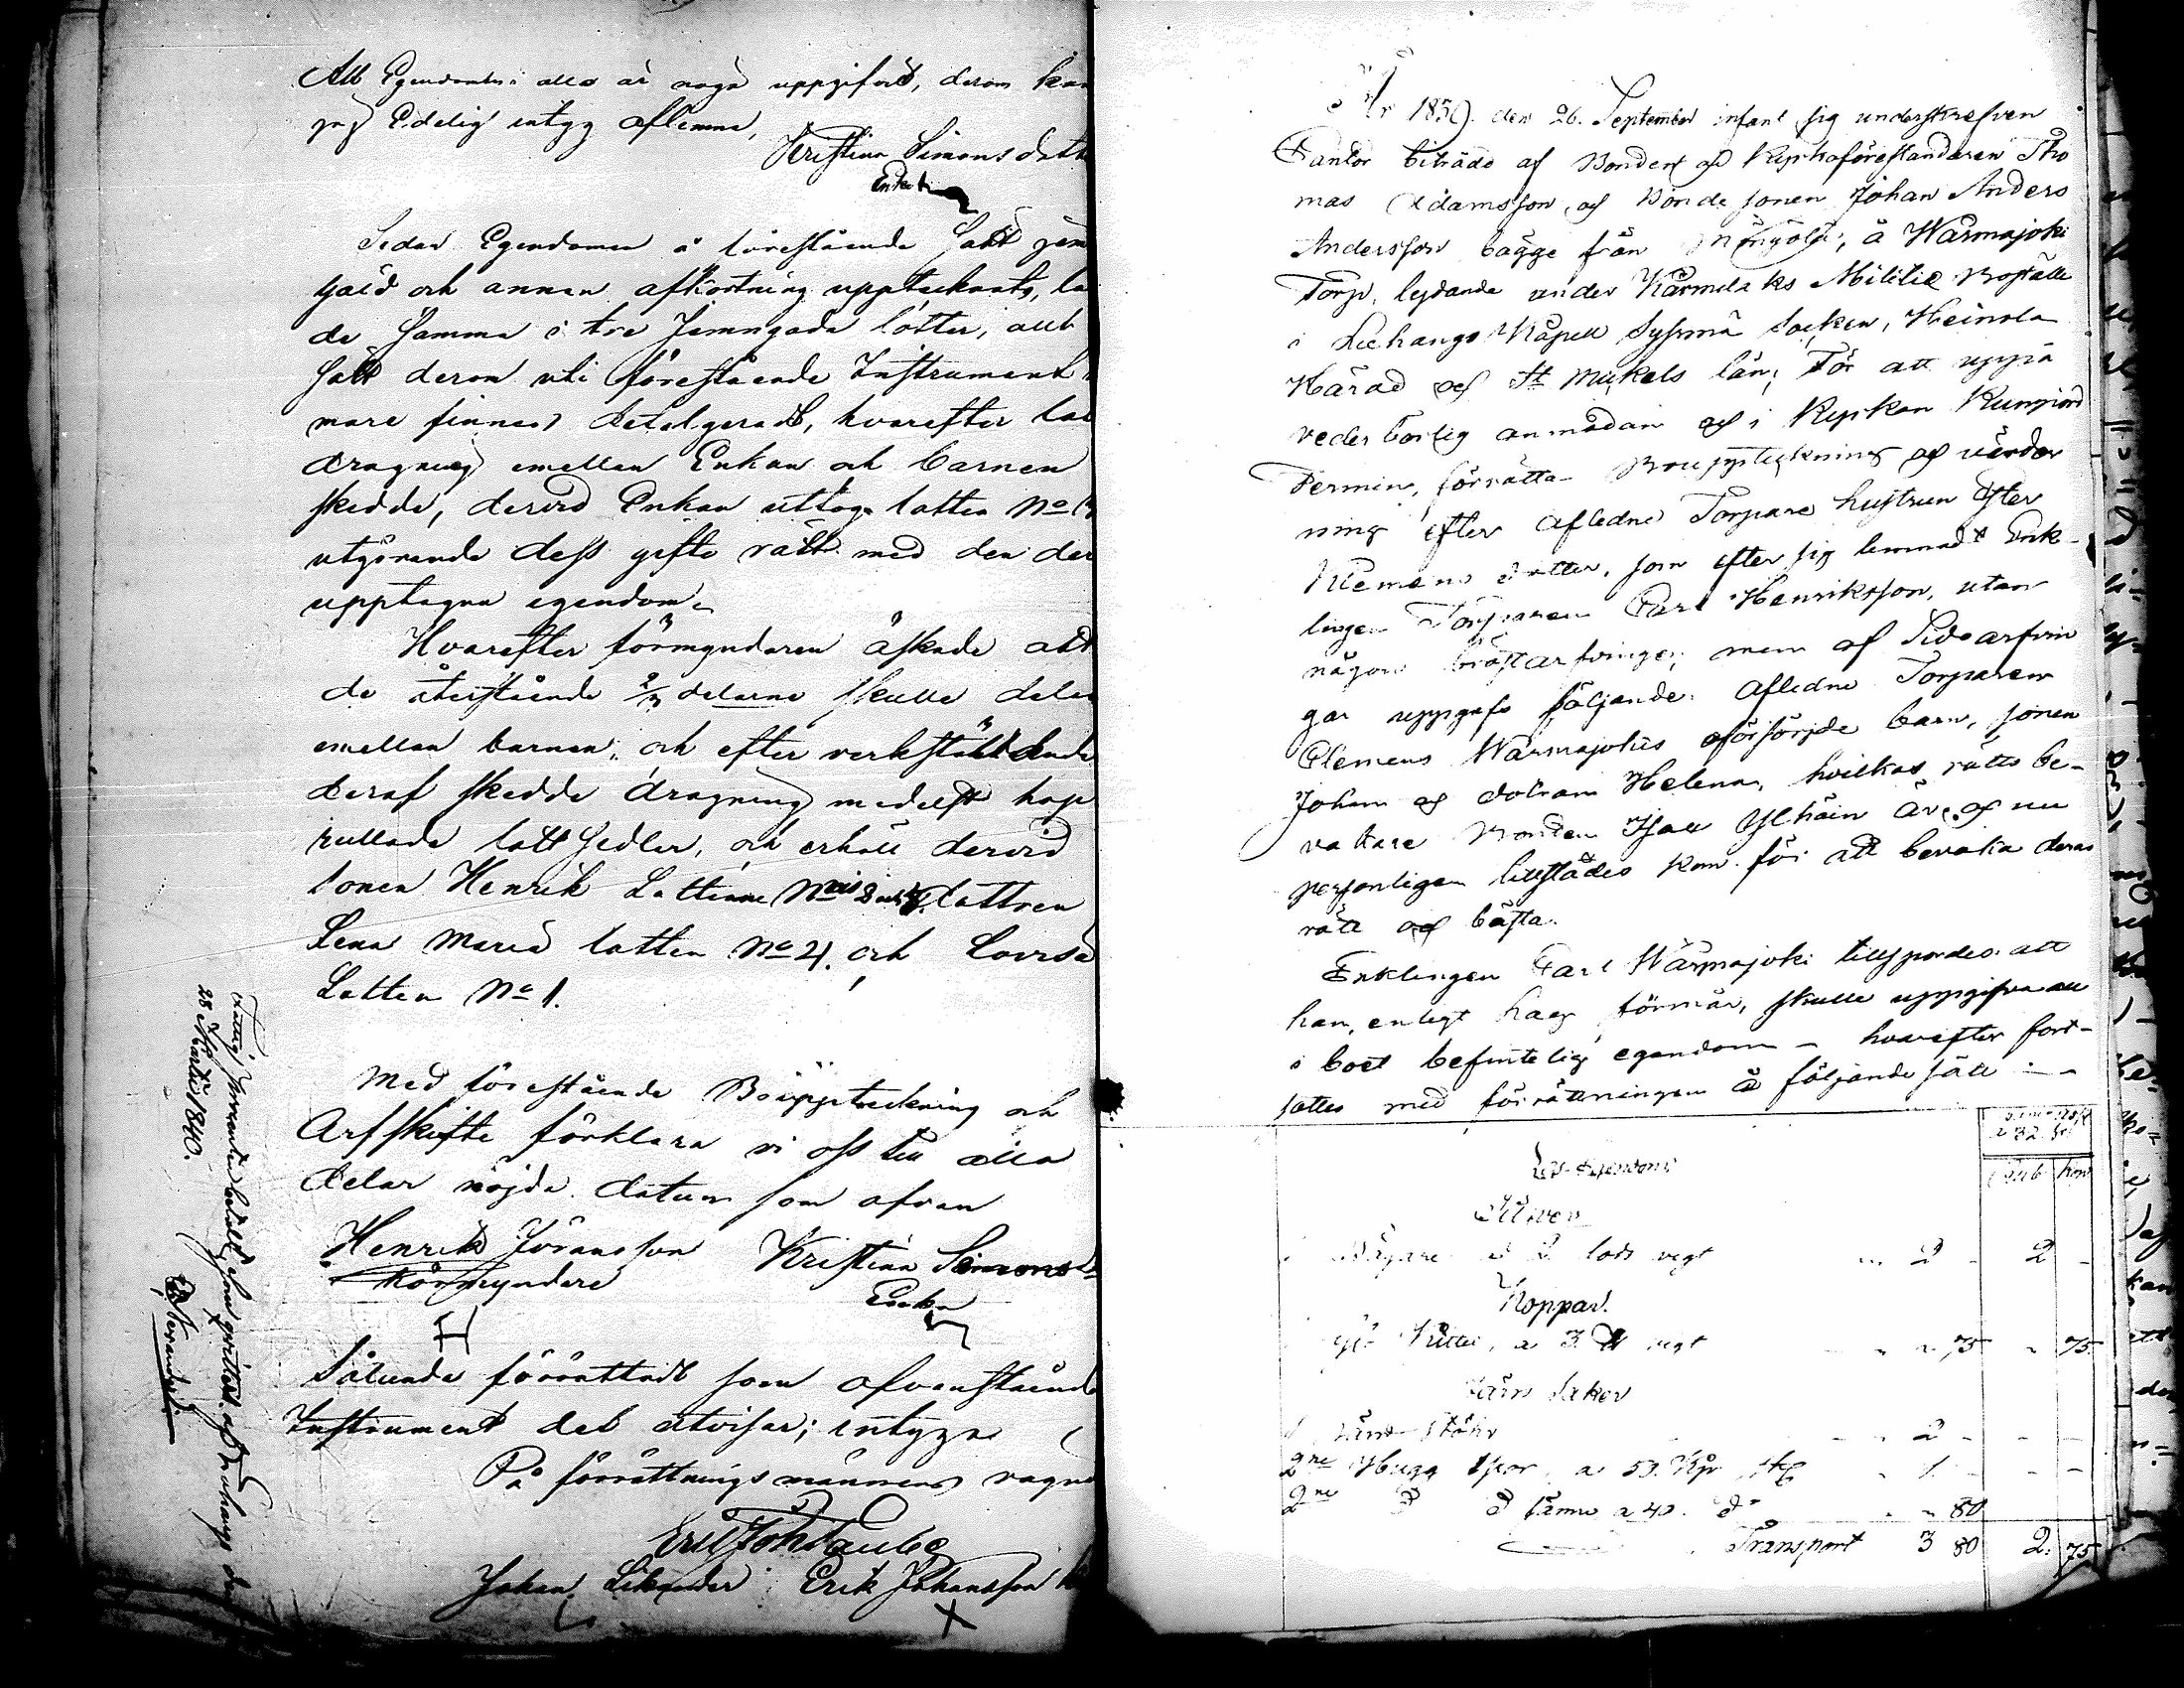 Att Egendomen i allo är noga uppgifvit, derom kan
jag Edelig intyg aflemna,
Kristina Simons dotter
Enka
Sedan Egendomen å förestående sätt jem
gäld och annan afkortning upptecknats, la
de samma i tre jemngoda lotter, allt
sätt derom uti förestående Instrument
mare finnes detalgeradt, hvarefter lot
dragning emellan Enkan och barnen
skedde, dervid Enkan uttog lotten No 3
utgörande dess gifto rätt med den der
upptagna egendom.
Hvarefter förmyndaren äskade att
de återstående 2/3 delarne skulle delas
emellan barnen, och efter verkställande
deraf skedde dragning medelst hop
rullade lottsedlar, och erhöll dervid
sonen Henrik Lotterne Nris 2 och dottren
Lena Maria lotten No 4. och Lovisa
Lotten No 1.
Med förestående Bouppteckning och
Arfskifte förklara vi oss till alla
delar nöjda. datum som ofvan
Henrik Jöransson Kristina Simonsd
förmyndare Enka
Sålunda förrättadt som ofvanstående
Instrument det utvisar; intyga
På förrättningsmännens vägnar
Erik Joh Paulbe
Johan Erik Johansson
28 Martii 1840.
År 1839. den 26. September infant sig underskrefven
Cantor biträdd af Bonden och Kyrkoföreståndaren Tho
mas Adamsson och Bonde sonen Johan Anders
Andersson bägge från å Wärmajoki
Torp, lydande under Kärmelaks Militie Boställe
i Leehangs Kapell Sysmä Socken, Heinola
Härad och St Mickels län; För att uppå
vederbörlig anmodan och i Kyrkan Kungjord
Termin, förrätta Bouppteckning och värder
ning efter Afledne Torpare hustrun Ester
Klemens dotter, som efter sig lemnadt Enk-
lingen Torparen Carl Henriksson, utan
någon bröstarfvinge, men af Sidoarfvin
gar uppgafs följande: Afledne Torparen
Clemens Wärmajokis oförsörjde barn, sonen
Johan och dottren Helena, hvilkas rätts be-
vakare Bonden Isak Ylhäin är, och nu
personligen tillstädes kom för att bevaka deras
rätt och bästa.
Enklingen Carl Wärmajoki tillspordes att
han, enligt hogg förmår, skulle uppgifva all
i boet befintelig egendom – hvarefter fort-
sattes med förrättningen å följande sätt
Rub Kop
Lös Egendom
Silfver
Bägare à 2 lods vigt 2 2
Koppar.
Kittel, à 3 ℔ vigt 75 75.
Järn Saker
2
2ne Hugg Yxor, à 50. Kop st 1
2ne do do sämre à 40. do 80
Transport 3 80 2. 75